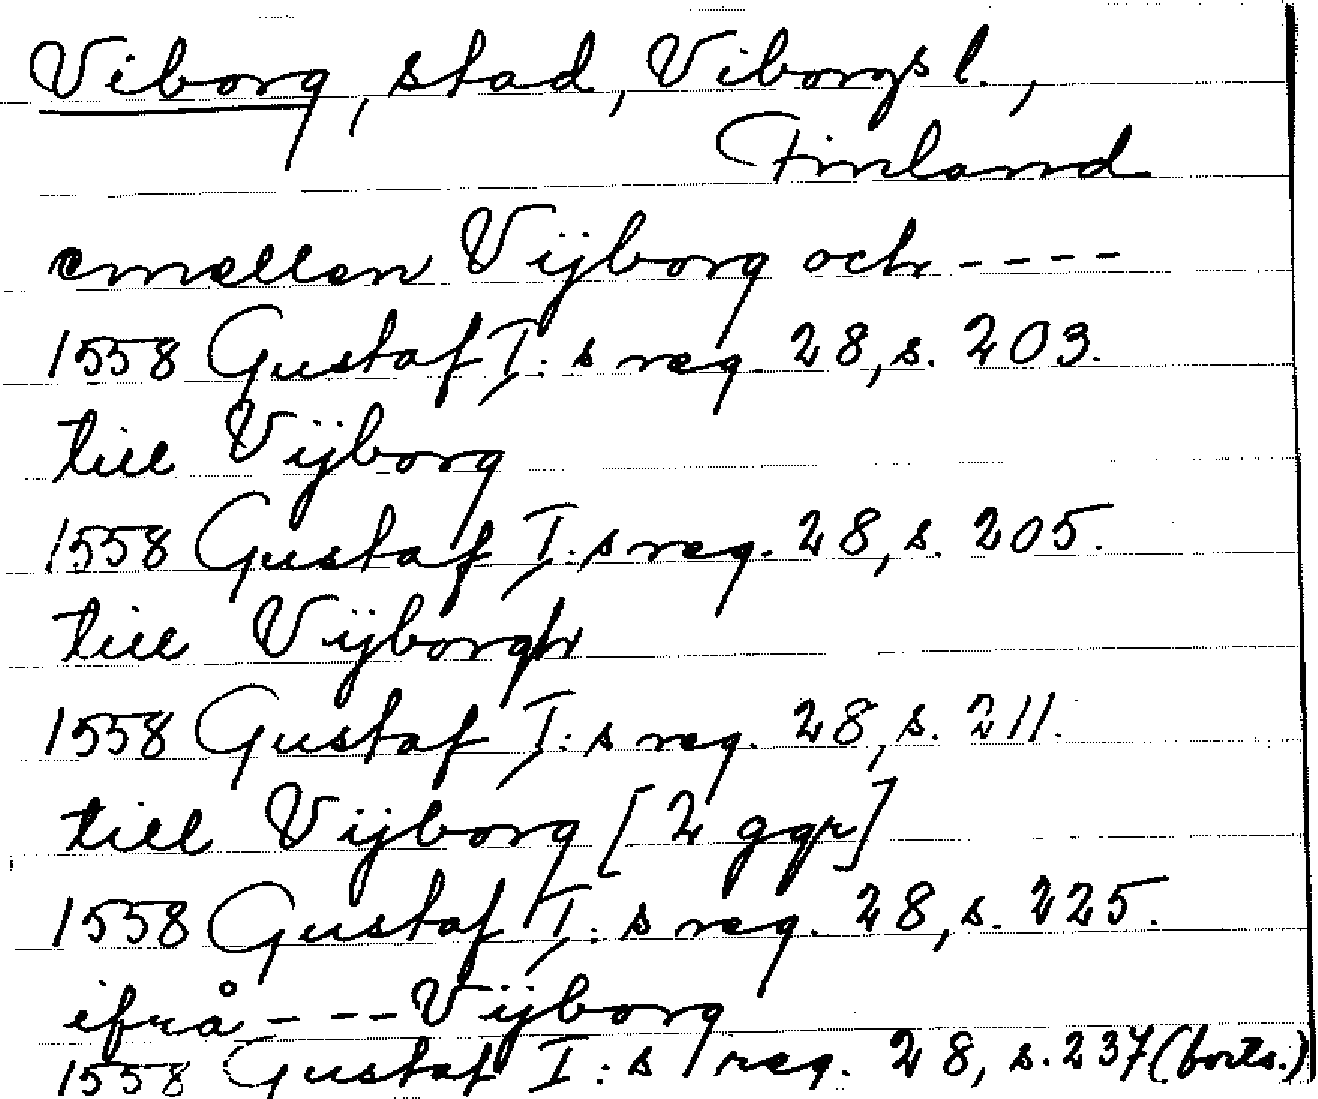 Viborg, stad, Viborgs l.,
Finland
emellen Vijborg och ----
1558 Gustaf I: s reg. 28, s. 203.
till Vijborg
1558 Gustaf I: s reg. 28, s. 205.
till Vijborgh
1558 Gustaf I: s reg. 28, s. 211.
till Vijborg [2 ggr]
1558 Gustaf I: s reg. 28, s. 225.
ifrå --- Vijborg
1558 Gustaf I: s reg. 28, s. 237 (forts.)